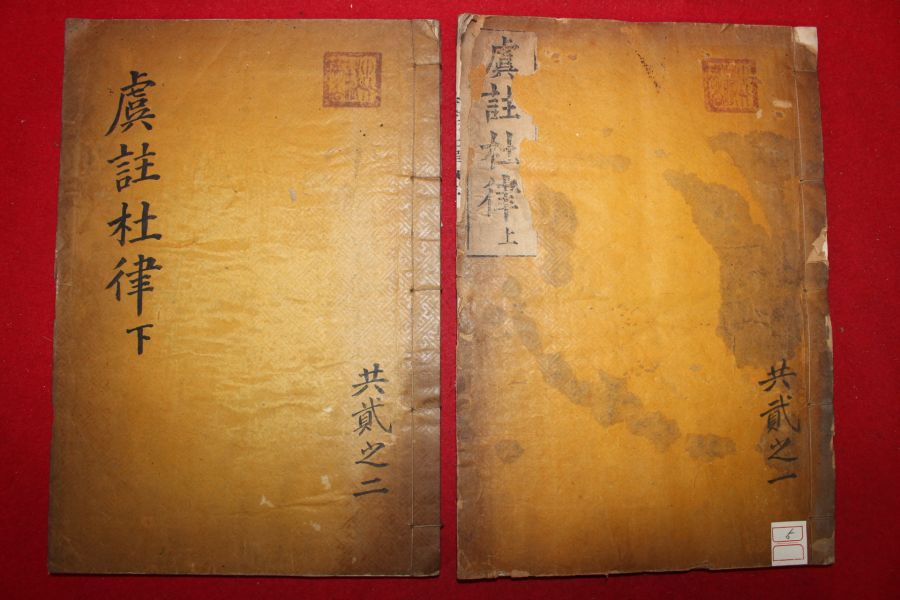 虞註杜律上
共貳之一
虞註杜律下
共貳之二